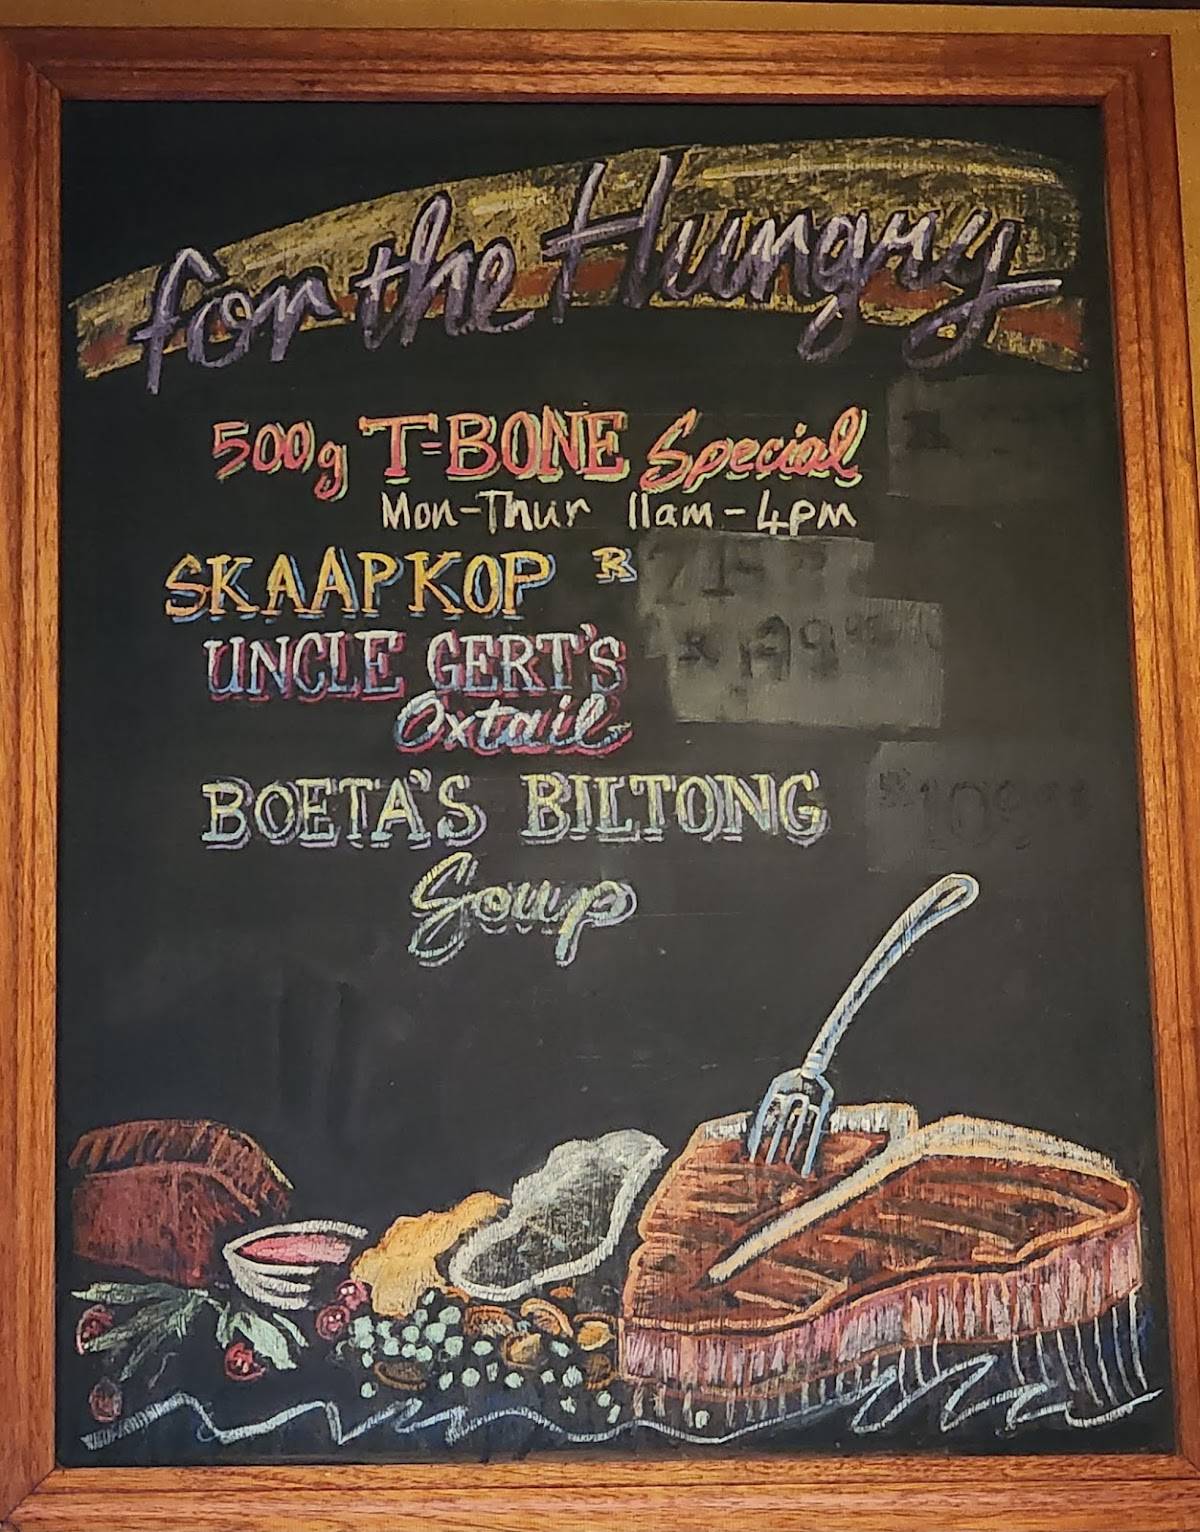 for the Hungry
500g T-BONE Special
Mon-Thur 11am-4pm
SKAAPKOP R
UNCLE GERT'S
Oxtail
BOETA'S BILTONG
Soup